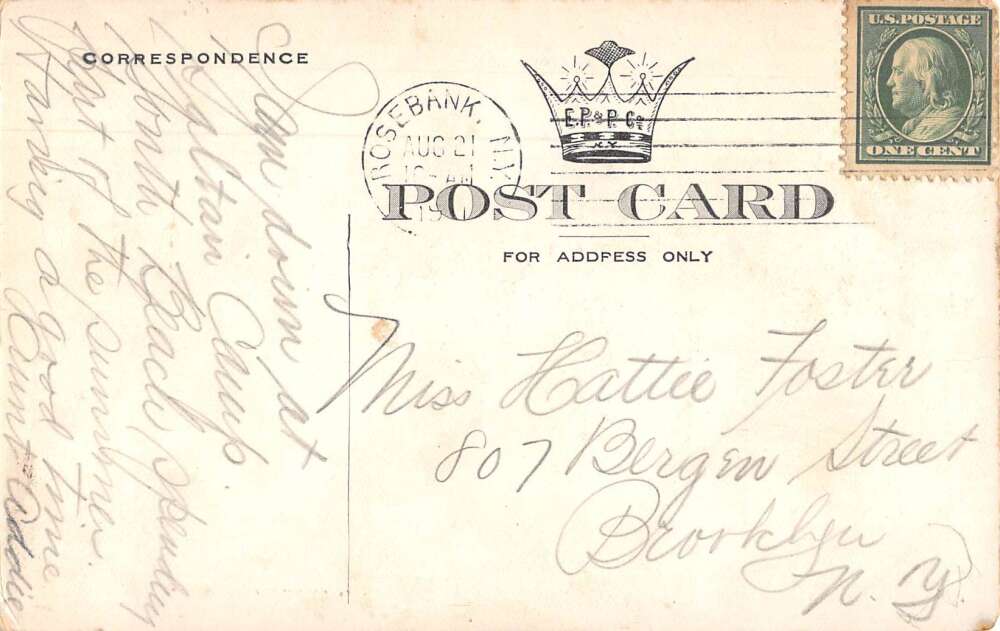 CORRESPONDENCE
I am down at
Camp
South Beach spending
part of the summer
Having a good time
Aunt Addie
ROSEBANK, N.Y.
AUG 21
AM
E.P.&P. Co.
N.Y.
U.S. POSTAGE
ONE CENT
POST CARD
FOR ADDRESS ONLY
Miss Hattie Foster
807 Bergen Street
Brooklyn
N. Y.